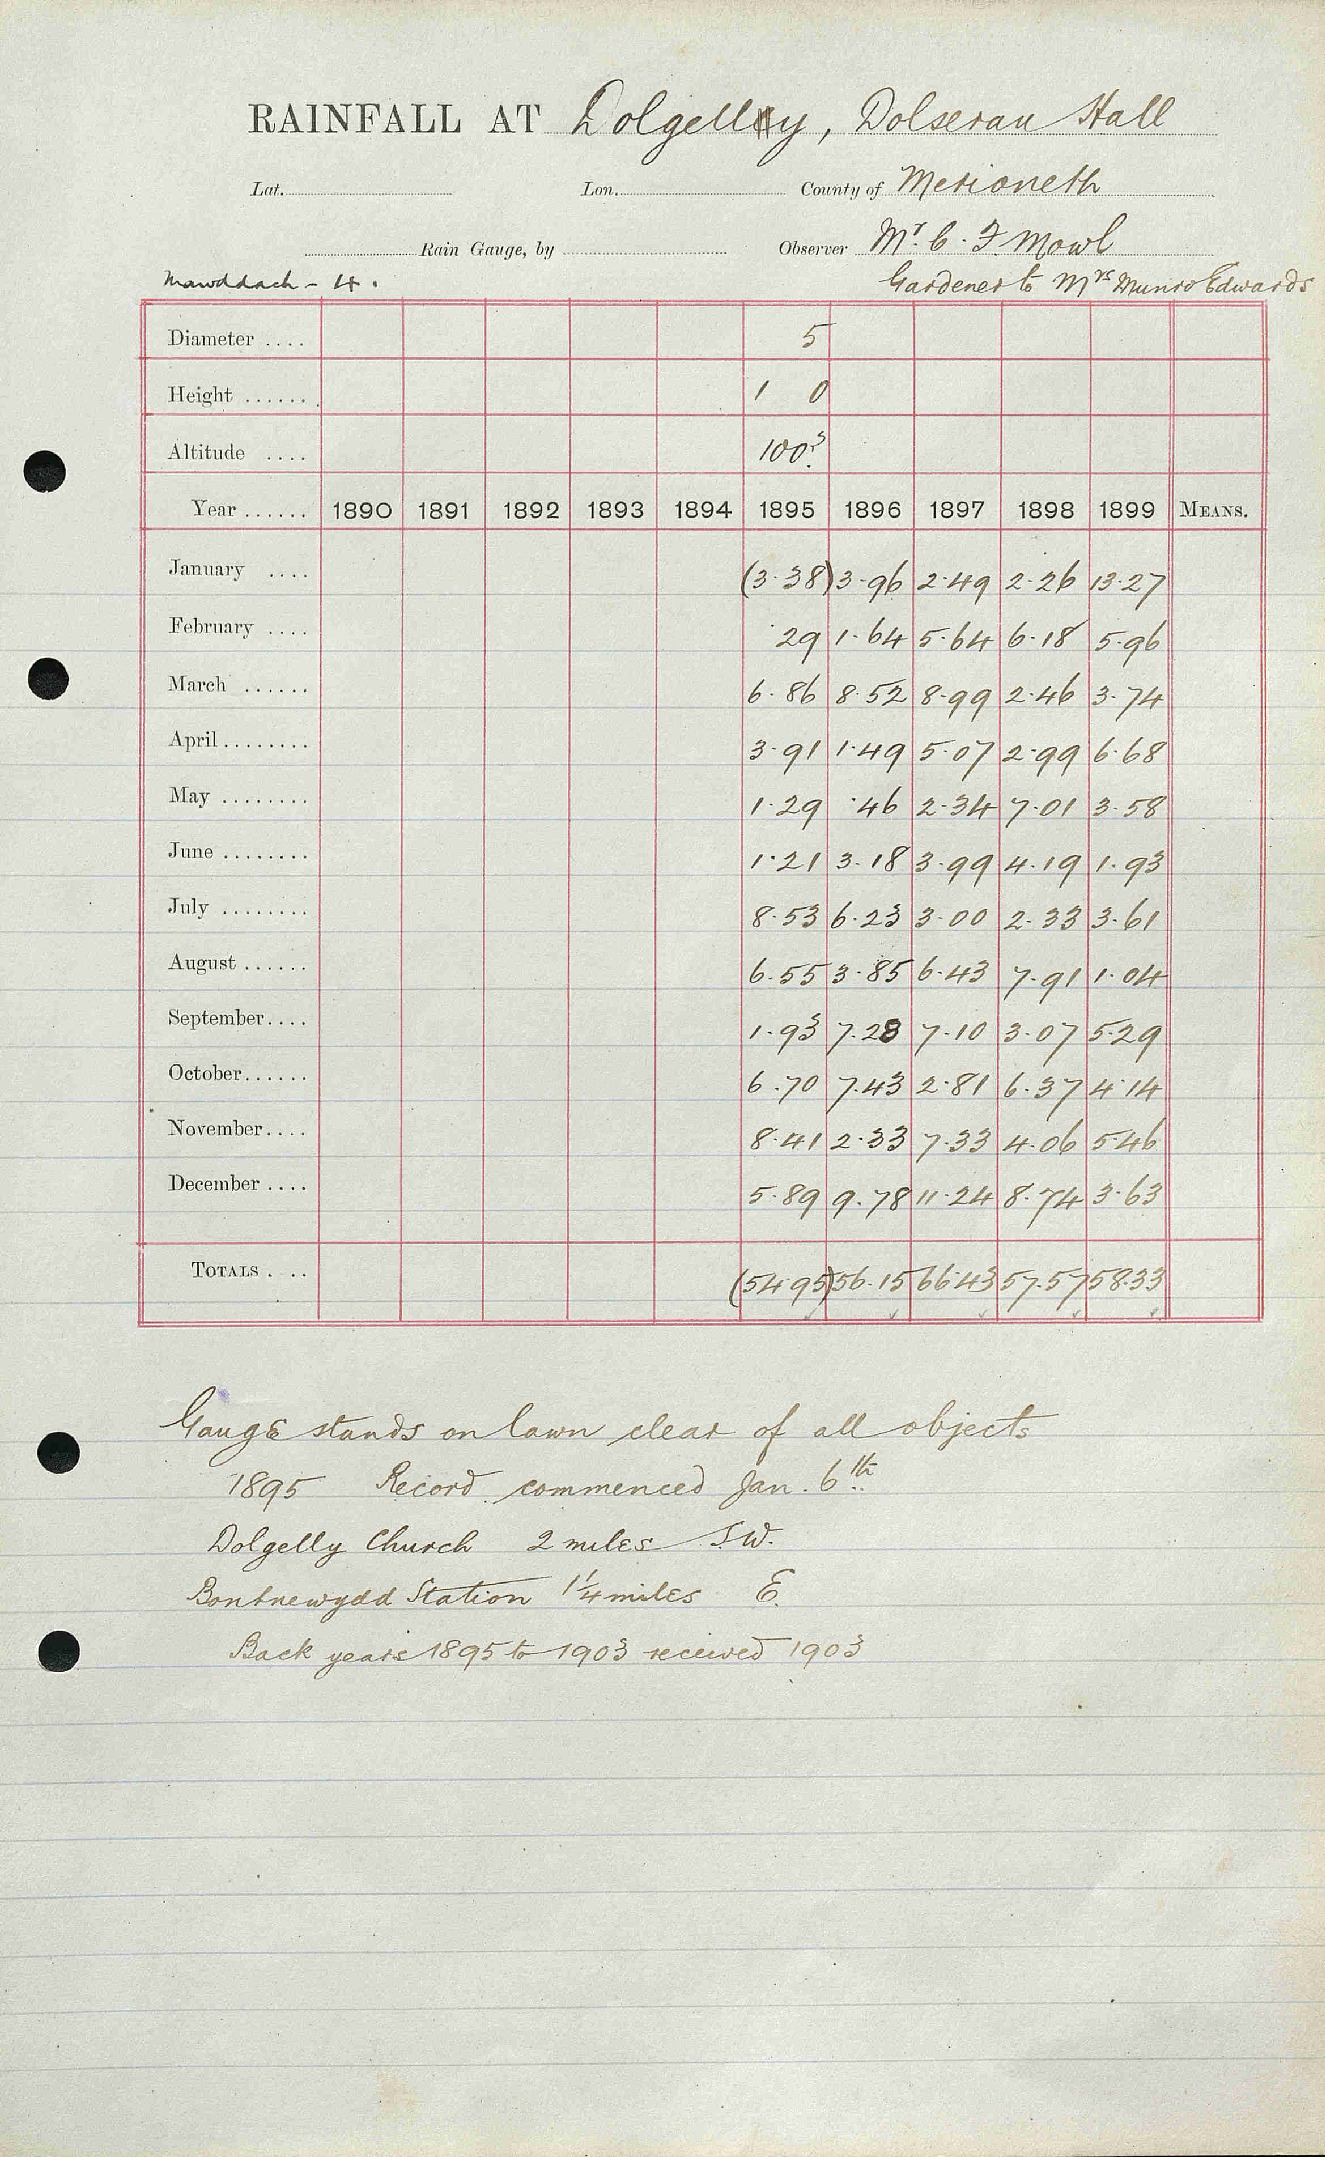 RAINFALL AT Dolgelly, Dolserau Hall
Lat. Lon. County of Merioneth
Rain Gauge, by Observer Mr. C. F. Mowl
Mawddach - 4. Gardener to Mrs Munro Edwards
Diameter .... 5
Height ...... 1 0
Altitude .... 100?
Year ...... 1890 1891 1892 1893 1894 1895 1896 1897 1898 1899 MEANS.
January .... (3.38) 3.96 2.49 2.26 13.27
February .... .29 1.64 5.64 6.18 5.96
March ...... 6.86 8.52 8.99 2.46 3.74
April ........ 3.91 1.49 5.07 2.99 6.68
May ........ 1.29 .46 2.34 7.01 3.58
June ........ 1.21 3.18 3.99 4.19 1.93
July ........ 8.53 6.23 3.00 2.33 3.61
August ...... 6.55 3.85 6.43 7.91 1.04
September.... 1.93 7.28 7.10 3.07 5.29
October...... 6.70 7.43 2.81 6.37 4.14
November.... 8.41 2.33 7.33 4.06 5.46
December .... 5.89 9.78 11.24 8.74 3.63
TOTALS . .. (54.95) 56.15 66.43 57.57 58.33
Gauge stands on lawn clear of all objects
1895 Record commenced Jan. 6th
Dolgelly Church 2 miles S.W.
Bontnewydd Station 1 1/4 miles E.
Back years 1895 to 1903 received 1903